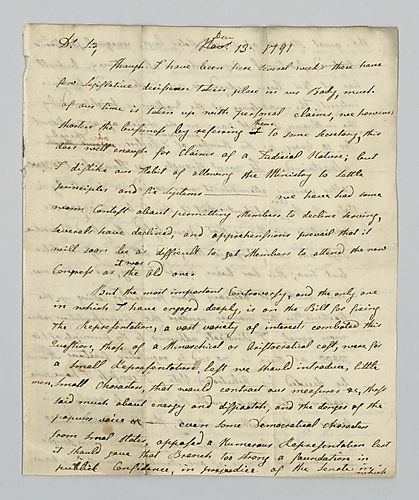 Dec
Nov. 13. 1791
Dr Sr,
Though I have been here several weeks there have
few Legislative decisions taken place in our Body, much
of our time is taken up with personal claims, we however
shorten the business by refering them to some Secretary, this
does well enough for Claims of a Judicial Nature; but
I dislike our Habit of allowing the Ministry to settle
principles and fix systems we have had some
warm Contest about permitting Members to decline serving,
several have declined, and apprehensions prevail that it
will soon be as difficult to get Members to attend the new
Congress as it was the Old one.
But the most important Controversy, and the only one
in which I have engaged deeply, is on the Bill for fixing
the Representation, a vast variety of interest combated this
Question, those of a Monarchial or Aristocratical cast, were for
a small Representation, lest we should introduce, little
men, small Characters, that would contract our measures &c, these
said much about energy and dispatch, and the danger of the
popular voice &c even some Democratical characters
from small states, opposed a Numerous Representation lest
it should give that Branch too strong a foundation in
publick Confidence, in prejudice of the Senate in
which